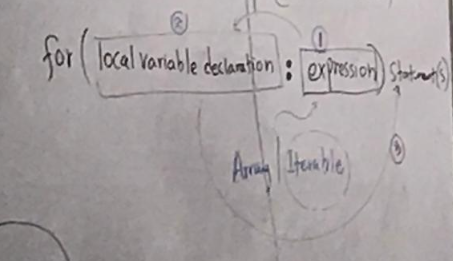 ② ①
for ( local variable declaration : expression ) Statement(s)
③
Array | Iterable